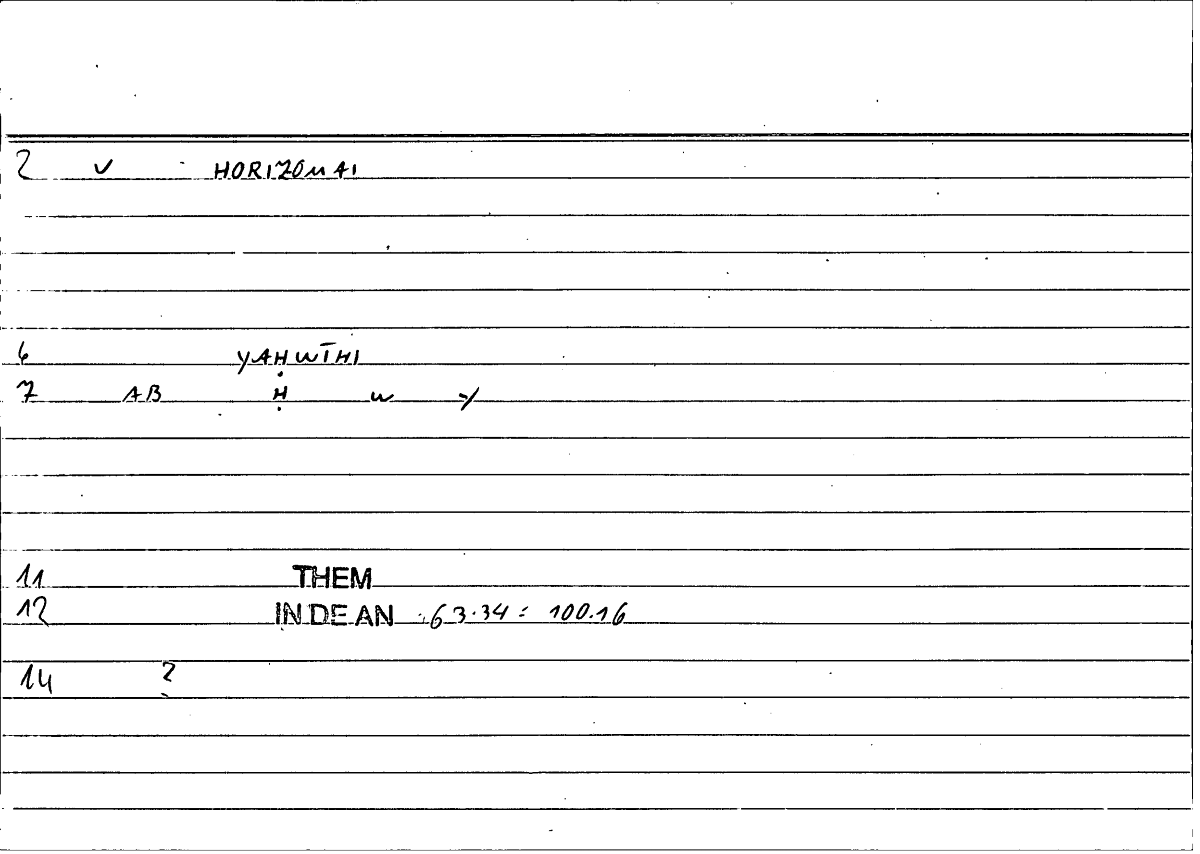 2 v HORIZONAI
6 YAHWĪHI
7 AB Ḥ W Y
11 THEM
12 IN DE AN :63.34 = 100.16
14 ?